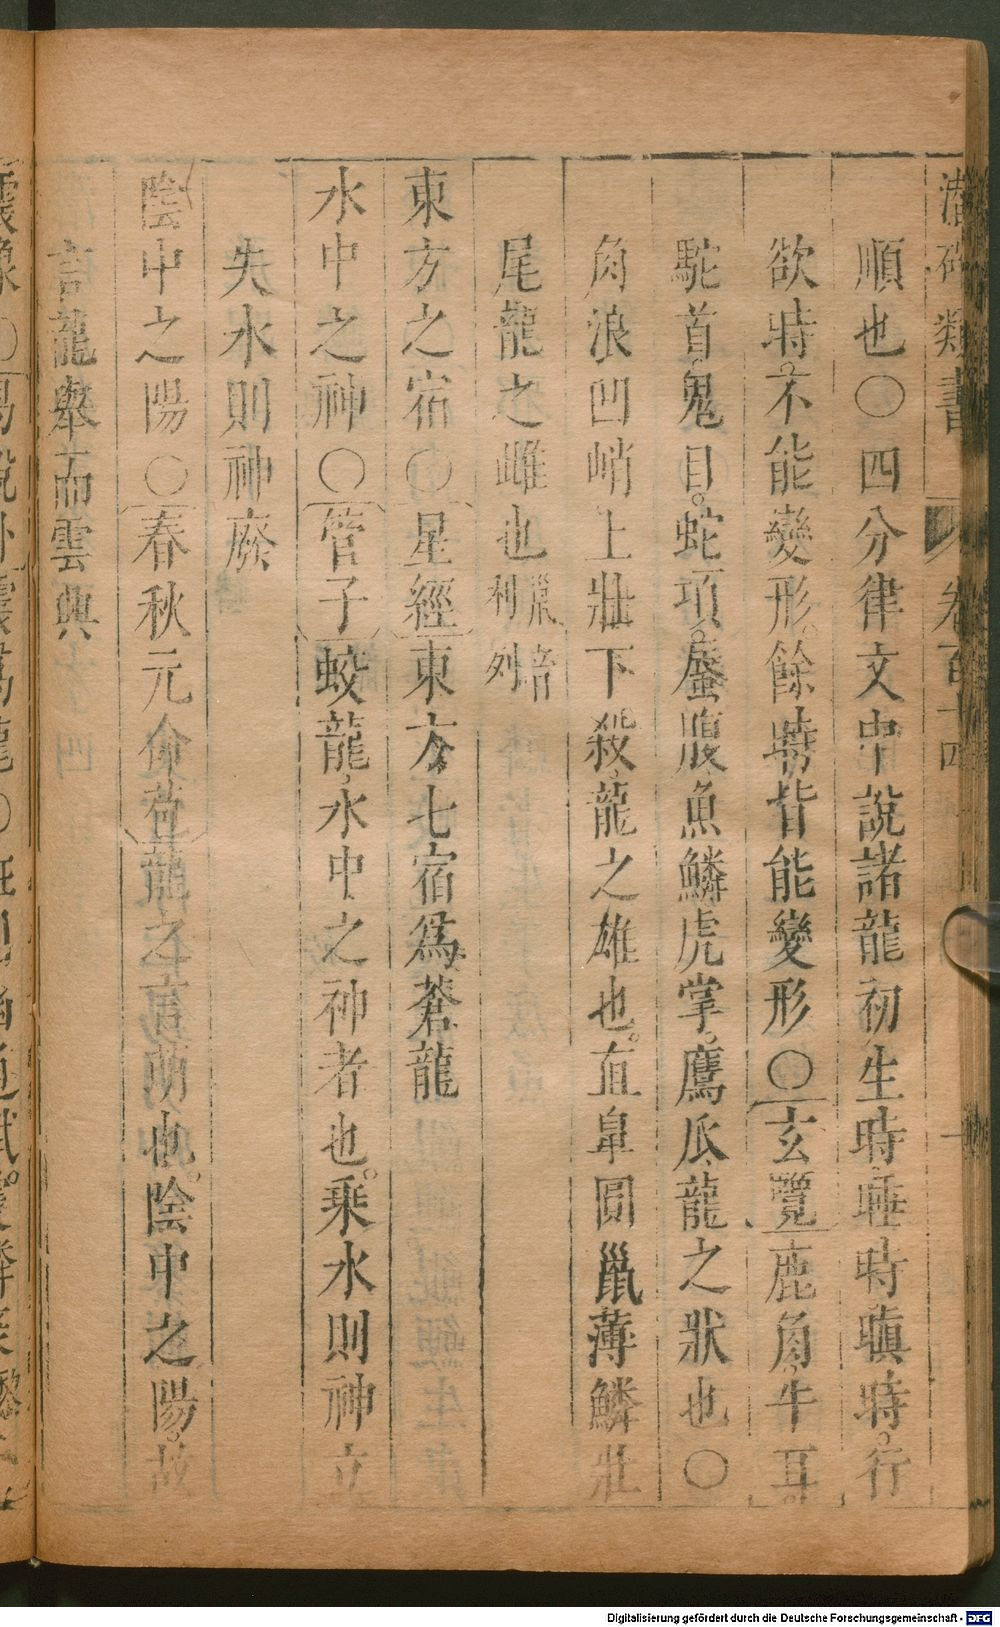 潛確類書 卷百十四 一
順也〇四分律文中說諸龍初生時睡時瞋時行
欲時不能變形餘時皆能變形〇玄覽鹿角牛耳
駝首鬼目蛇項蜃腹魚鱗虎掌鷹爪龍之狀也〇
角浪凹峭上壯下殺龍之雄也直鼻圓鬣薄鱗壯
尾龍之雌也鬣音利列
東方之宿〇星經東方七宿爲蒼龍
水中之神〇管子蛟龍水中之神者也乘水則神立
失水則神廢
陰中之陽〇春秋元命苞龍之言萌也陰中之陽故
言龍舉而雲興
Digitalisierung gefördert durch die Deutsche Forschungsgemeinschaft - DFG